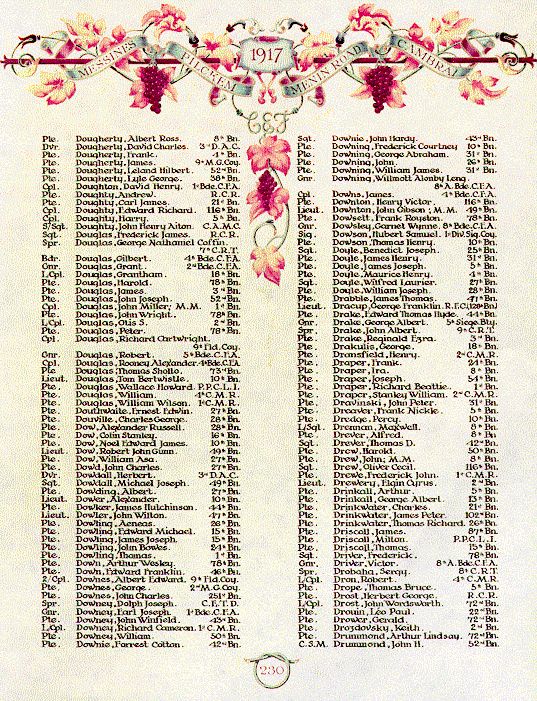 MESSINES
PILCKEM
1917
MENIN ROAD
CAMBRAI
C E F
Pte. Dougherty, Albert Ross. 8th Bn.
Dvr. Dougherty, David Charles. 3rd D.A.C.
Pte. Dougherty, Frank. 4th Bn.
Pte. Dougherty, James. 9th M.G.Coy.
Pte. Dougherty, Leland Hilbert. 52nd Bn.
Pte. Dougherty, Lyle George. 38th Bn.
Cpl. Doughton, David Henry. 1st Bde.C.F.A.
Pte. Doughty, Andrew. R.C.R.
Pte. Doughty, Carl James. 21st Bn.
Cpl. Doughty, Edward Richard. 116th Bn.
Cpl. Doughty, Harry. 5th Bn.
S/Sgt. Doughty, John Henry Aiton. C.A.M.C.
Sgt. Douglas, Frederick James. R.C.R.
Spr. Douglas, George Nathaniel Coffin.
7th C.R.T.
Bdr. Douglas, Gilbert. 4th Bde.C.F.A.
Gnr. Douglas, Grant. 2nd Bde.C.F.A.
L/Cpl. Douglas, Grantham. 18th Bn.
Pte. Douglas, Harold. 78th Bn.
Pte. Douglas, James. 3rd Bn.
Pte. Douglas, John Joseph. 52nd Bn.
Cpl. Douglas, John Miller; M.M. 1st Bn.
Pte. Douglas, John Wright. 78th Bn.
L/Cpl. Douglas, Otis S. 2nd Bn.
Pte. Douglas, Peter. 78th Bn.
Cpl. Douglas, Richard Cartwright.
9th Fld.Coy.
Gnr. Douglas, Robert. 5th Bde.C.F.A.
Cpl. Douglas, Rooney Alexander. 4th Bde.C.F.A.
Pte. Douglas, Thomas Sholto. 73rd Bn.
Lieut. Douglas, Tom Bertwistle. 10th Bn.
Pte. Douglas, Wallace Howard. P.P.C.L.I.
Pte. Douglas, William. 4th C.M.R.
Pte. Douglas, William Wilson. 1st C.M.R.
Pte. Douthwaite, Ernest Edwin. 27th Bn.
Pte. Douville, Charles George. 28th Bn.
Pte. Dow, Alexander Russell. 28th Bn.
Pte. Dow, Colin Stanley. 16th Bn.
Pte. Dow, Noel Edward James. 10th Bn.
Lieut. Dow, Robert John Gunn. 49th Bn.
Pte. Dow, William Asa. 27th Bn.
Pte. Dowd, John Charles. 27th Bn.
Dvr. Dowdall, Herbert. 3rd D.A.C.
Sgt. Dowdall, Michael Joseph. 49th Bn.
Pte. Dowding, Albert. 27th Bn.
Lieut. Dower, Alexander. 10th Bn.
Pte. Dowker, James Hutchinson. 44th Bn.
Lieut. Dowler, John Wilton. 47th Bn.
Pte. Dowling, Aeneas. 26th Bn.
Pte. Dowling, Edward Michael. 15th Bn.
Pte. Dowling, James Joseph. 15th Bn.
Pte. Dowling, John Bowes. 24th Bn.
Pte. Dowling, Thomas. 1st Bn.
Pte. Down, Arthur Wesley. 78th Bn.
Pte. Down, Edward Franklin. 46th Bn.
2/Cpl. Downes, Albert Edward. 9th Fld.Coy.
Pte. Downes, George. 2nd M.G.Coy.
Pte. Downes, John Charles. 251st Bn.
Spr. Downey, Dolph Joseph. C.E.T.D.
Gnr. Downey, Earl Joseph. 1st Bde.C.F.A.
Pte. Downey, John Winfield. 43rd Bn.
L/Cpl. Downey, Richard Cameron. 1st C.M.R.
Pte. Downey, William. 50th Bn.
Pte. Downie, Forrest Cotton. 42nd Bn.
Sgt. Downie, John Hardy. 43rd Bn.
Pte. Downing, Frederick Courtney 10th Bn.
Pte. Downing, George Abraham. 31st Bn.
Pte. Downing, John. 26th Bn.
Pte. Downing, William James. 31st Bn.
Gnr. Downing, Wilmott Alonby Leng.
8th A. Bde.C.F.A.
Cpl. Downs, James. 4th Bde.C.F.A.
Pte. Downton, Henry Victor. 116th Bn.
Lieut. Downton, John Gibson; M.M. 49th Bn.
Pte. Dowsett, Frank Royston. 78th Bn.
Gnr. Dowsley, Garnet Wynne. 8th Bde.C.F.A.
Sig. Dowson, Hubert Samuel. 1st Div.Sig.Coy.
Pte. Dowson, Thomas Henry. 10th Bn.
Sgt. Doyle, Benedict Joseph. 25th Bn.
Pte. Doyle, James Henry. 31st Bn.
Pte. Doyle, James Joseph. 5th Bn.
Pte. Doyle, Maurice Henry. 4th Bn.
Sgt. Doyle, Wilfred Laurier. 27th Bn.
Pte. Doyle, William Joseph. 28th Bn.
Pte. Drabble, James Thomas. 47th Bn.
Lieut. Dracup, George Franklin. R.F.C.(120th Bn)
Pte. Drake, Edward Thomas Hyde. 44th Bn.
Gnr. Drake, George Albert. 5th Siege.Bty.
Spr. Drake, John Albert. 9th C.R.T.
Pte. Drake, Reginald Ezra. 3rd Bn.
Pte. Drakulis, George. 18th Bn.
Pte. Dransfield, Henry. 2nd C.M.R.
Pte. Draper, Frank. 24th Bn.
Pte. Draper, Ira. 8th Bn.
Pte. Draper, Joseph. 54th Bn.
Pte. Draper, Richard Beattie. 1st Bn.
Pte. Draper, Stanley William. 2nd C.M.R.
Pte. Dravinski, John Peter. 31st Bn.
Pte. Dreaver, Frank Nickle. 5th Bn.
Pte. Dredge, Percy. 10th Bn.
L/Sgt. Drennan, Maxwell. 8th Bn.
Pte. Drever, Alfred. 8th Bn.
Sgt. Drever, Thomas D. 42nd Bn.
Pte. Drew, Harold. 50th Bn.
Pte. Drew, John; M.M. 8th Bn.
Sgt. Drew, Oliver Cecil. 116th Bn.
Pte. Drewe, Frederick John. 1st C.M.R.
Lieut. Drewery, Elgin Cyrus. 2nd Bn.
Pte. Drinkall, Arthur. 5th Bn.
Pte. Drinkall, George Albert. 13th Bn.
Pte. Drinkwater, Charles. 21st Bn.
Pte. Drinkwater, James Peter. 102nd Bn.
Pte. Drinkwater, Thomas Richard. 26th Bn.
Pte. Driscoll, James. 87th Bn.
Pte. Driscoll, Milton. P.P.C.L.I.
Pte. Driscoll, Thomas. 15th Bn.
Sgt. Driver, Frederick. 78th Bn.
Gnr. Driver, Victor. 8th A.Bde.C.F.A.
Spr. Drobaha, Sergy. 8th C.R.T.
L/Cpl. Dron, Robert. 4th C.M.R.
Pte. Drope, Thomas Bruce. 5th Bn.
Pte. Drost, Herbert George. R.C.R.
L/Cpl. Drost, John Wordsworth. 72nd Bn.
Pte. Drouin, Leo Paul. 22nd Bn.
Pte. Drower, Gerald. 72nd Bn.
Pte. Drozdovsky, Keith. 2nd Bn.
Pte. Drummond, Arthur Lindsay. 72nd Bn.
C.S.M. Drummond, John H. 52nd Bn.
230